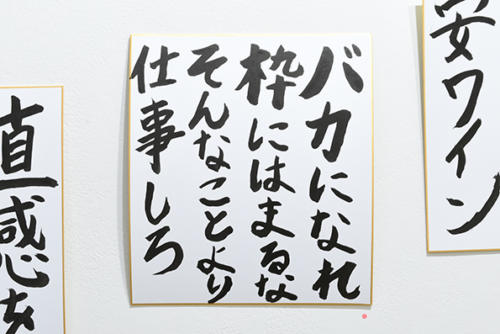 安ワイン
バカになれ
枠にはまるな
そんなことより
仕事しろ
直感を